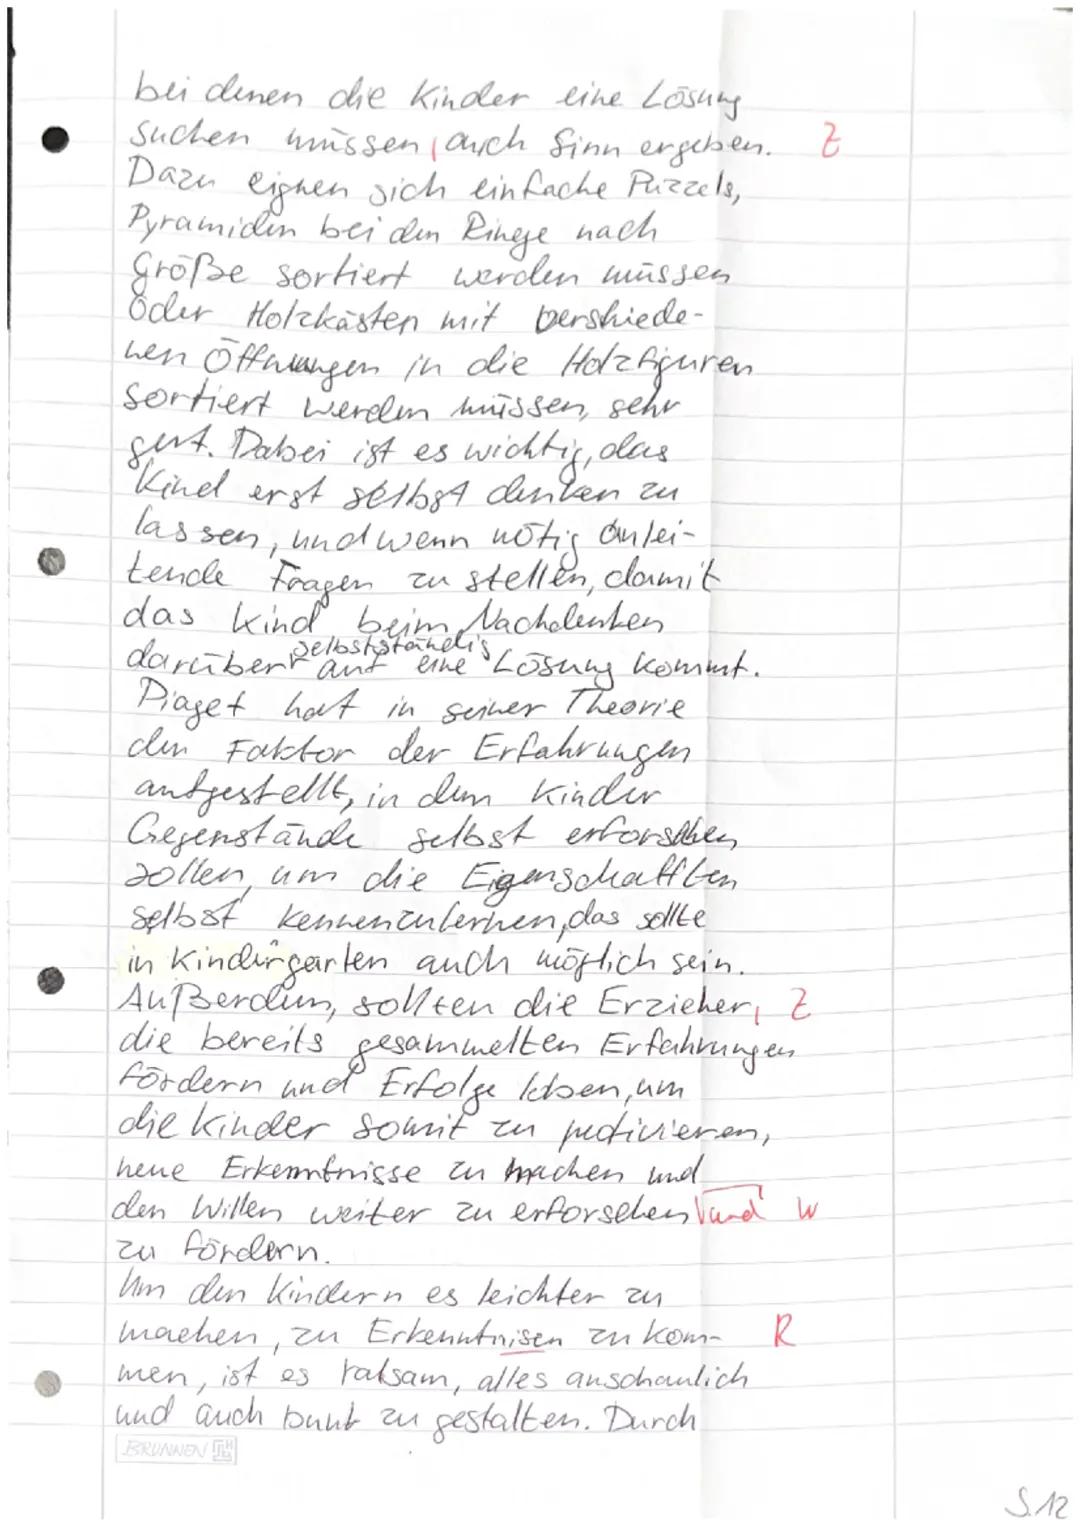 bei denen die Kinder eine Lösung
suchen müssen, auch Sinn ergeben. Z
Dazu eignen sich einfache Puzzels,
Pyramiden bei den Ringe nach
Größe sortiert werden müssen
oder Holzkästen mit vershiede-
nen Öffnungen in die Holzfiguren
sortiert werden müssen, sehr
gut. Dabei ist es wichtig, das
Kind erst selbst denken zu
lassen, und wenn nötig anlei-
tende Fragen zu stellen, damit
das Kind beim Nachdenken
darüber selbstständig auf eine Lösung kommt.
Piaget hat in seiner Theorie
den Faktor der Erfahrungen
aufgestellt, in dem Kinder
Gegenstände selbst erforschen
sollen, um die Eigenschafften
selbst kennenzulernen, das sollte
in Kindergarten auch möglich sein.
Außerdem, sollten die Erzieher, Z
die bereits gesammelten Erfahrungen
fördern und Erfolge loben, um
die Kinder somit zu motivieren,
neue Erkenntnisse zu machen und
den Willen weiter zu erforschen und W
zu fördern.
Um den Kindern es leichter zu
machen, zu Erkenntnisen zu kom- R
men, ist es ratsam, alles anschaulich
und auch bunt zu gestalten. Durch
BRUNNEN
S. 12